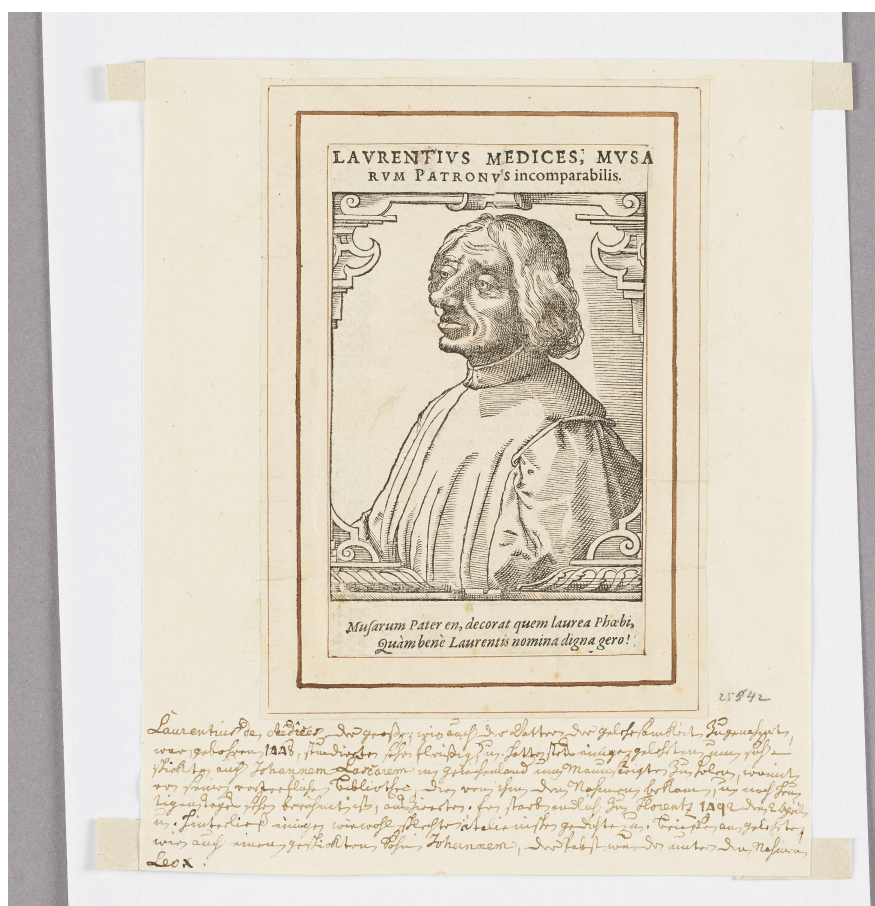 LAVRENTIVS MEDICES, MVSA
RVM PATRONVS incomparabilis.
Muſarum Pater en, decorat quem laurea Phœbi,
Quàm benè Laurentis nomina digna gero!
25542
Laurentius de Medices, der große, wie auch der Vatter der gelehrsamkeit zugenahmt,
war gebohren 1448, studierte sehr fleißig, hatte stets einige gelehrten um sich
schickte auch Johannem Lascarem in griechenland umb Manuscripta zu holen, womit
er seine vortreffliche Bibliothec, die von ihm den Nahmen bekam, u. noch heu
tigen tages sehr berühmt ist, auszierte. Er starb endlich zu Florentz 1492 den 2 April
u. hinterließ einige wiewohl schlechte italienische gedichte u. briefe an gelehrte,
wie auch einen geschickten Sohn Johannem, der Pabst wurde unter dem Nahmen
Leo X.